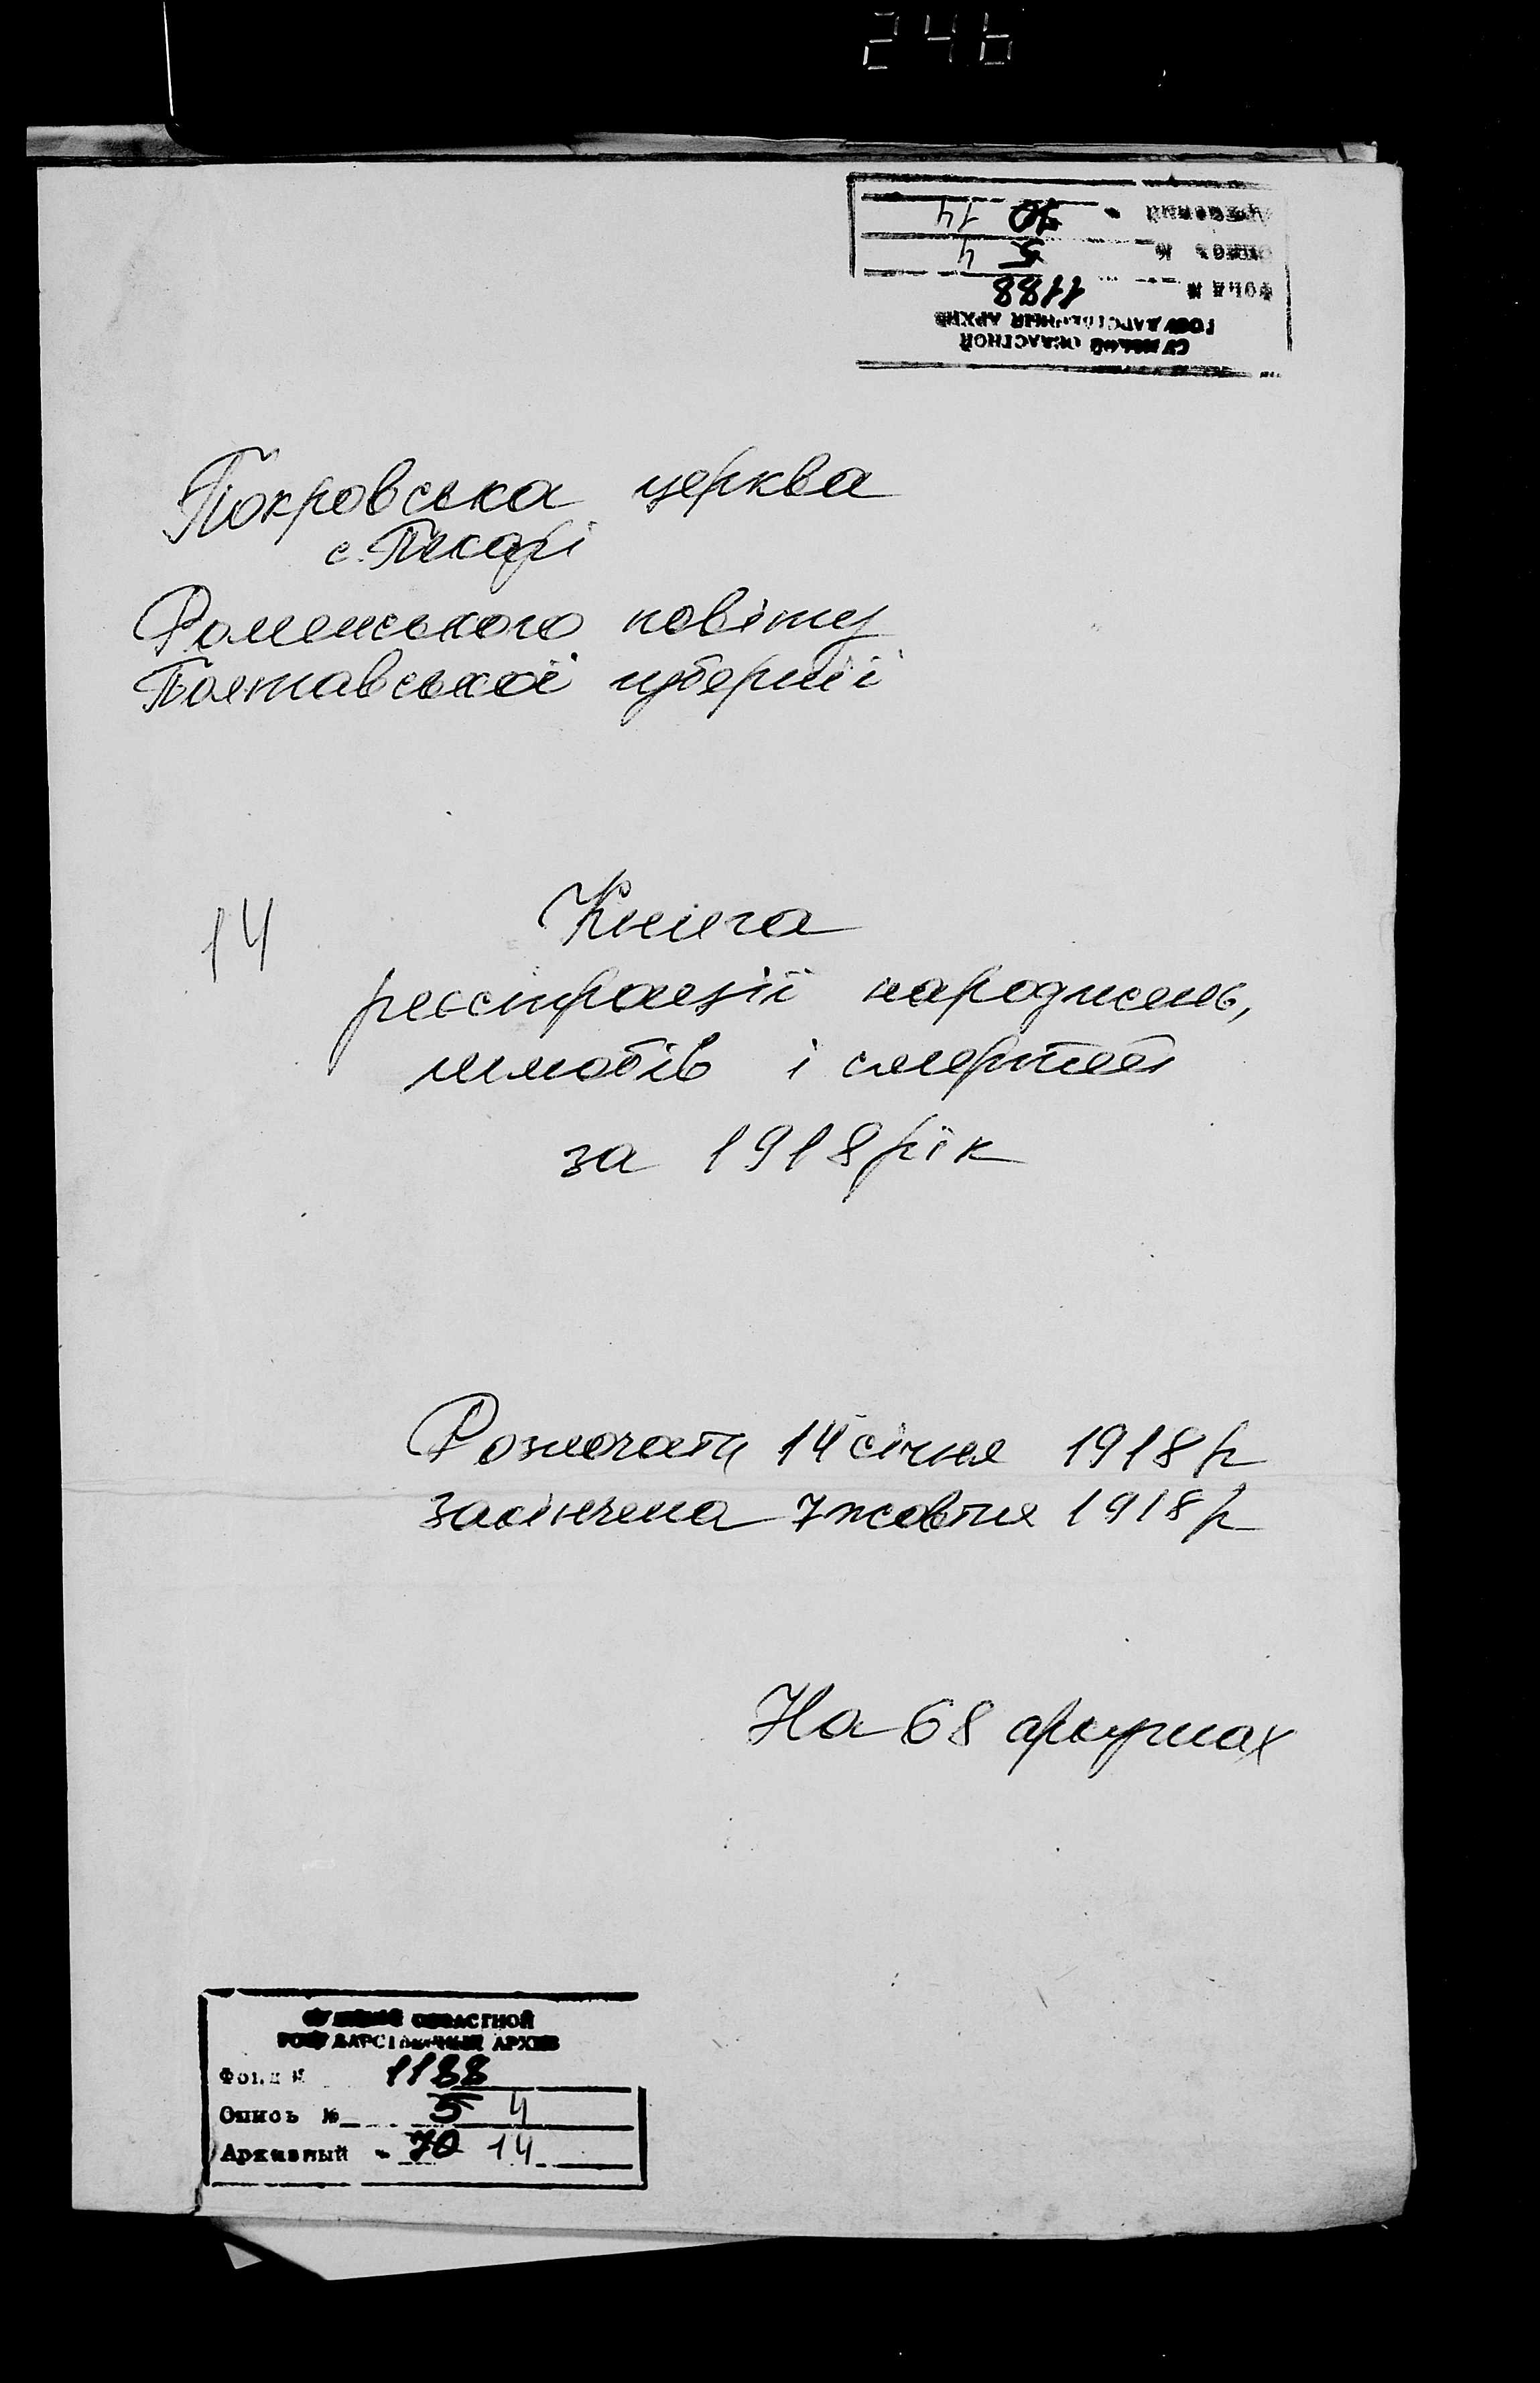 246
СУМСКОЙ ОБЛАСТНОЙ
ГОСУДАРСТВЕННЫЙ АРХИВ
Фонд № 1188
Опись № 5 4
Архивный № 70 14
Покровська церква
с. Пекарі
Роменського повіту
Полтавської губернії
14
Книга
реєстрації народжень,
шлюбів і смертей
за 1918 рік
Розпочата 14 січня 1918 р
закінчена 7 жовтня 1918 р
На 68 аркушах
СУМСКОЙ ОБЛАСТНОЙ
ГОСУДАРСТВЕННЫЙ АРХИВ
Фонд № 1188
Опись № 5 4
Архивный № 70 14